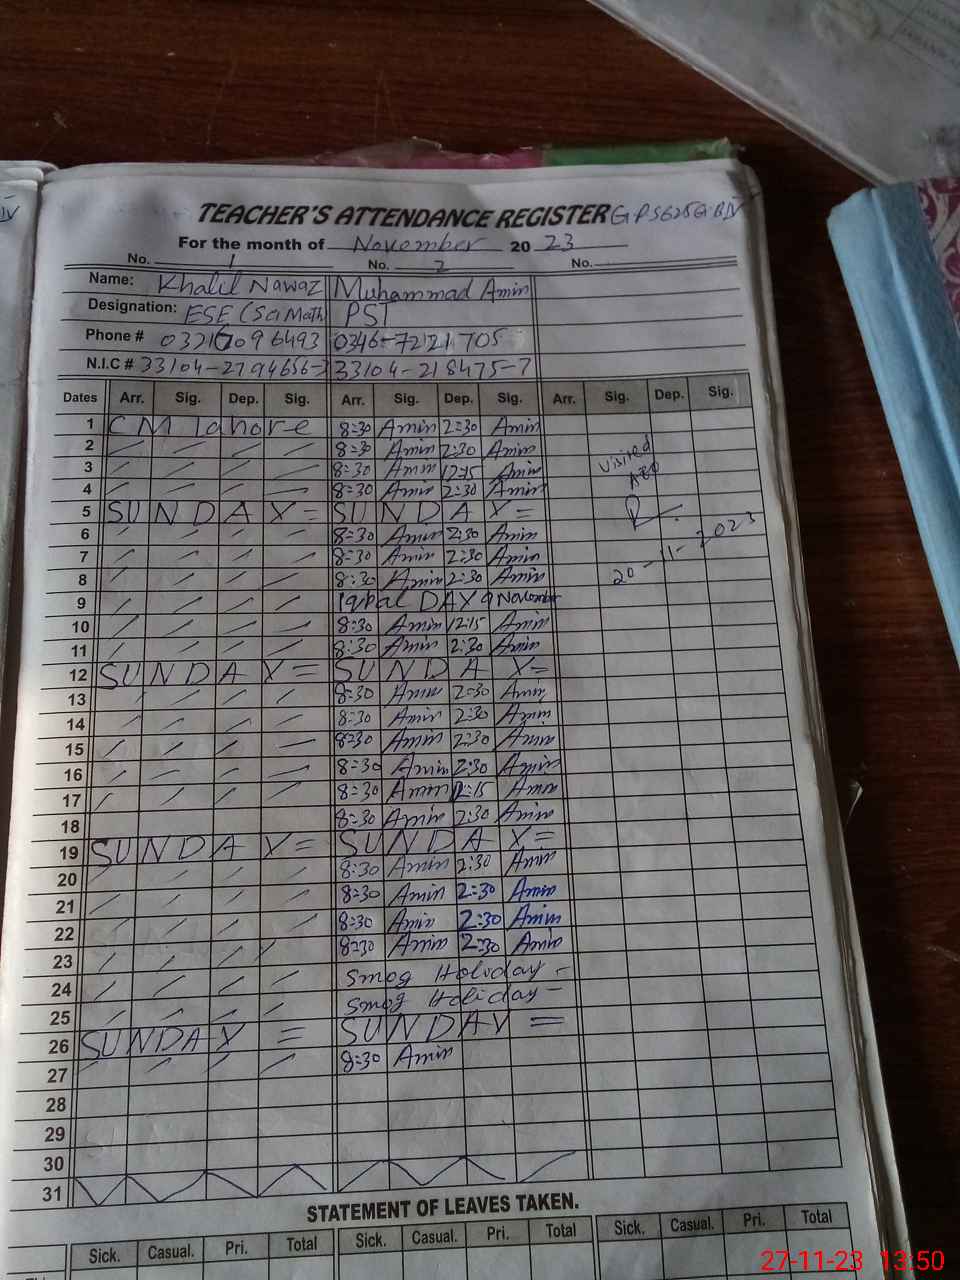 TEACHER'S ATTENDANCE REGISTER GPS 625 GB IV
For the month of November 20 23
No. 1 No. 2 No.
Name: Khalil Nawaz Muhammad Amin
Designation: ESE (Sci Math) PST
Phone # 0321 7096493 0346-7221705
N.I.C # 33104-2794656-3 33104-218475-7
Dates Arr. Sig. Dep. Sig. Arr. Sig. Dep. Sig. Arr. Sig. Dep. Sig.
1 CM lahore 8=30 Amin 2:30 Amin
2 8=30 Amin 2:30 Amin
3 8=30 Amin 12:15 Amin visited
4 8=30 Amin 2:30 Amin AEO
5 SUNDAY= SUNDAY=
6 8=30 Amin 2:30 Amin
7 8=30 Amin 2:30 Amin
8 8:30 Amin 2:30 Amin 20-11-2023
9 Iqbal DAY 9 November
10 8:30 Amin 12:15 Amin
11 8:30 Amin 2:30 Amin
12 SUNDAY= SUNDAY=
13 8=30 Amin 2=30 Amin
14 8=30 Amin 2:30 Amin
15 8=30 Amin 2:30 Amin
16 8=30 Amin 2:30 Amin
17 8=30 Amin 12:15 Amin
18 8=30 Amin 2:30 Amin
19 SUNDAY= SUNDAY=
20 8:30 Amin 2:30 Amin
21 8=30 Amin 2=30 Amin
22 8=30 Amin 2:30 Amin
23 8=30 Amin 2=30 Amin
24 Smog Holiday -
25 Smog Holiday -
26 SUNDAY = SUNDAY =
27 8=30 Amin
28
29
30
31
STATEMENT OF LEAVES TAKEN.
Sick. Casual. Pri. Total Sick. Casual. Pri. Total Sick. Casual. Pri. Total
27-11-23 13:50